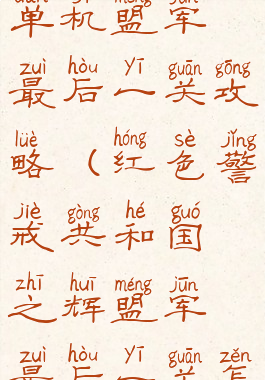 单 机 盟 军
zuì hòu Yī guān gōng
最 后 一 关 攻
lüè hóng sè jǐng
略 （ 红 色 警
jiè gòng hé guó
戒 共 和 国
zhī huī méng jūn
之 辉 盟 军
zuì hòu Yī guān zěn
最 后 一 关 怎